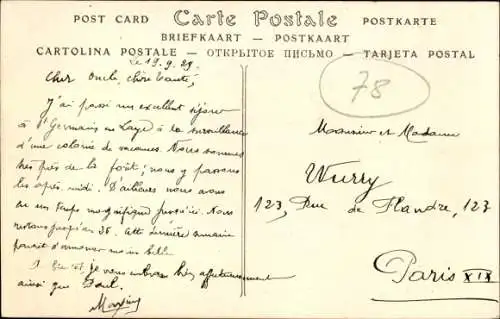 POST CARD Carte Postale POSTKARTE
BRIEFKAART — POSTKAART
CARTOLINA POSTALE — ОТКРЫТОЕ ПИСЬМО — TARJETA POSTAL
Le 19.9.29
78
Cher Oncle, chère tante,
J'ai passé un excellent séjour
à St Germain en Laye à la surveillance
d'une colonie de vacances. Nous sommes
très près de la forêt; nous y passons
les après-midi. D'ailleurs nous avons
eu un temps magnifique jusqu'ici. Nous
restons jusqu'au 26. Cette dernière semaine
paraît s'annoncer moins belle.
je vous embrasse très affectueusement
ainsi que Paul.
Monsieur et Madame
Wurry
123, Rue de Flandre, 123
Paris XIX